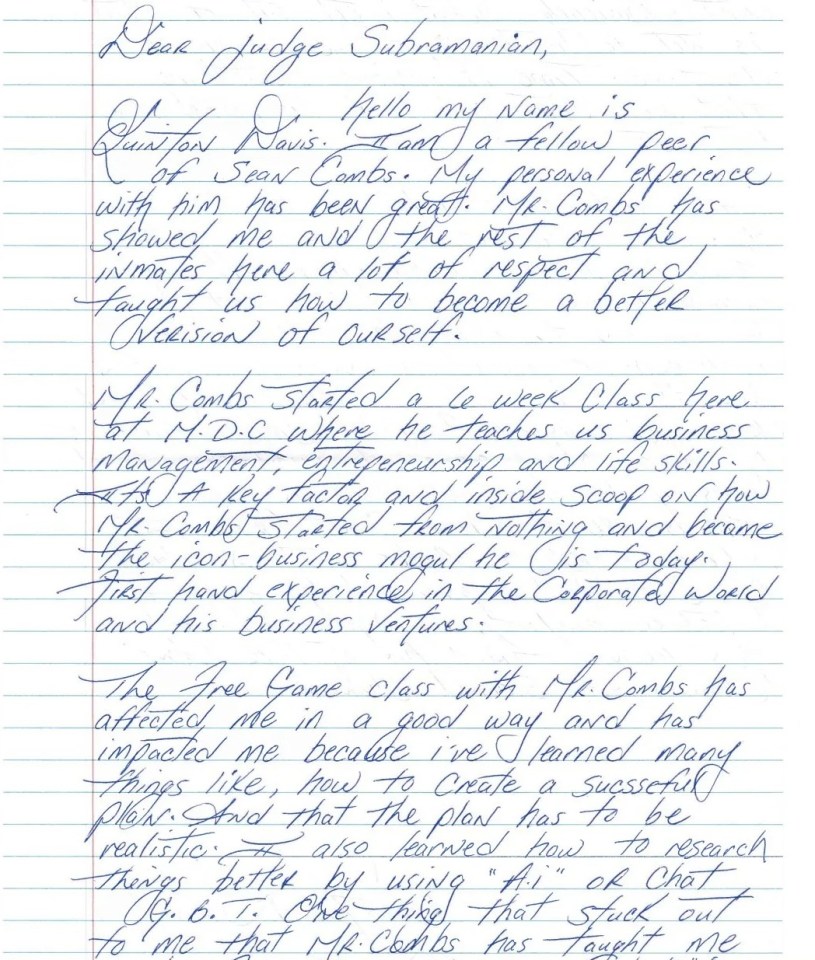 Dear Judge Subramanian,
Hello my Name is
Quinton Davis. I am a fellow peer
of Sean Combs. My personal experience
with him has been great. Mr. Combs has
showed me and the rest of the
inmates here a lot of respect and
taught us how to become a better
verision of ourself.
Mr. Combs started a 6 week Class here
at M.D.C where he teaches us business
management, entrepeneurship and life skills.
Its A key factor and inside scoop on how
Mr. Combs started from Nothing and became
the icon-business mogul he is today.
First hand experience in the Corporate World
and his business Ventures.
The Free Game class with Mr. Combs has
affected me in a good way and has
impacted me because i've learned many
things like, how to create a sucsseful
plan. And that the plan has to be
realistic. I also learned how to research
things better by using "A.i" or Chat
G.B.T. One thing that stuck out
to me that Mr. Combs has taught me